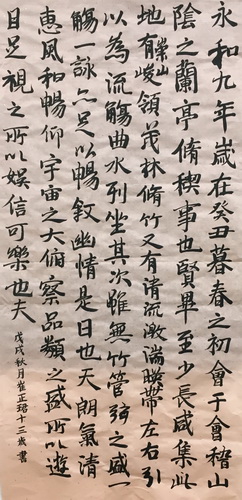 永和九年歲在癸丑暮春之初會于會稽山
陰之蘭亭脩稧事也賢畢至少長咸集此
地有崇山峻領茂林脩竹又有清流激湍暎帶左右引
以為流觴曲水列坐其次雖無竹管弦之盛一
觴一詠亦足以暢敘幽情是日也天朗氣清
惠風和暢仰宇宙之大俯察品類之盛所以遊
目足視之所以娛信可樂也夫
戊戌秋月崔正珺十三歲書